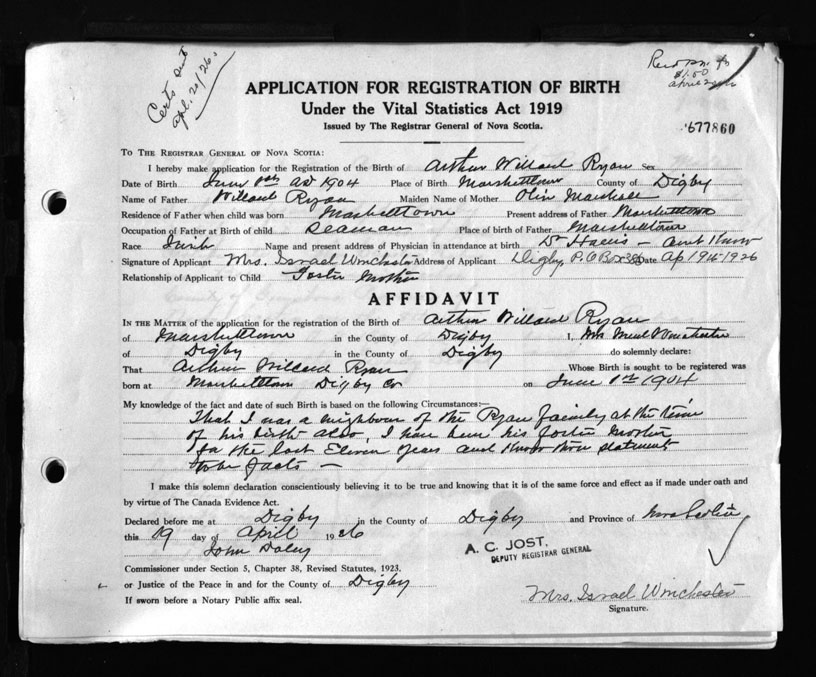 Certs out
Apl. 20/26.
$1.00
APPLICATION FOR REGISTRATION OF BIRTH
Under the Vital Statistics Act 1919
Issued by The Registrar General of Nova Scotia.
677860
TO THE REGISTRAR GENERAL OF NOVA SCOTIA:
I hereby make application for the Registration of the Birth of Arthur Willard Ryan Sex
Date of Birth June 1904 Place of Birth Marshelltown County of Digby
Name of Father Willard Ryan Maiden Name of Mother Marshall
Residence of Father when child was born Marshelltown Present address of Father Marshelltown
Occupation of Father at Birth of child Seaman Place of birth of Father Marshelltown
Race Irish Name and present address of Physician in attendance at birth Dr
Signature of Applicant Mrs. Israel Winchester Address of Applicant Digby, P.O Box Date Ap 19th-1926
Relationship of Applicant to Child Foster Mother
AFFIDAVIT
IN THE MATTER of the application for the registration of the Birth of Arthur Willard Ryan
of Marshelltown in the County of Digby I, Mrs Winchester
of Digby in the County of Digby do solemnly declare:
That Arthur Willard Ryan Whose Birth is sought to be registered was
born at Marshelltown Digby Co on June 1904
My knowledge of the fact and date of such Birth is based on the following Circumstances:—
That I was a neighbour of the Ryan family at the time
of his birth also, I have been his foster Mother
for the last Eleven years and know these statements
to be facts —
I make this solemn declaration conscientiously believing it to be true and knowing that it is of the same force and effect as if made under oath and
by virtue of The Canada Evidence Act.
Declared before me at Digby in the County of Digby and Province of Nova Scotia
this 19 day of April 1926
John Daley
A. C. JOST,
DEPUTY REGISTRAR GENERAL
Commissioner under Section 5, Chapter 38, Revised Statutes, 1923.
or Justice of the Peace in and for the County of Digby
If sworn before a Notary Public affix seal.
Mrs. Israel Winchester
Signature.